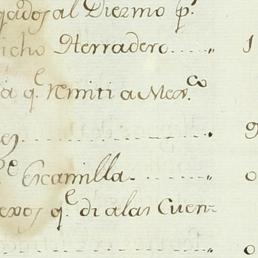 gados al Diezmo p.r
icho Herradero..... „ 1
a q.e remiti a Mex.co
es...................... „ 9
p.e Escamilla....... „ 0
exos q.e di a las Cuen=
........................ „ 0